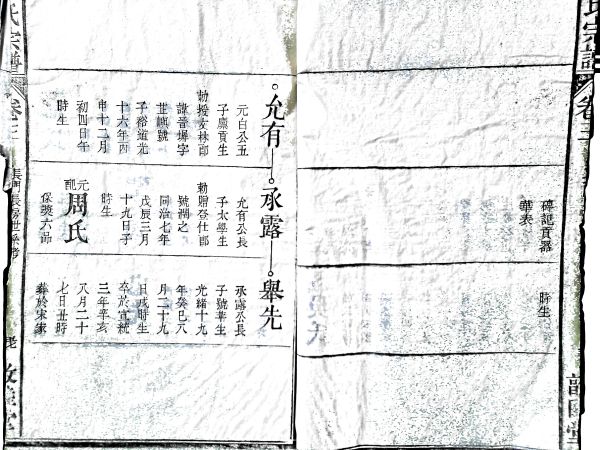 氏宗譜
卷三
碑記貢器
華表
時生
允有
承露
舉先
元白公五
子廩貢生
勅授文林郎
諱晉墀字
號
子裕道光
十六年丙
申十二月
初四日午
時生
允有公長
子太學生
勅贈登仕郎
號潤之
同治七年
戊辰三月
十九日子
時生
元配周氏
保獎六品
承露公長
子號莘生
光緒十九
年癸巳八
月二十九
日戌時生
卒於宣統
三年辛亥
八月二十
七日丑時
葬於宋家
氏宗譜
卷三
長門長房世系考